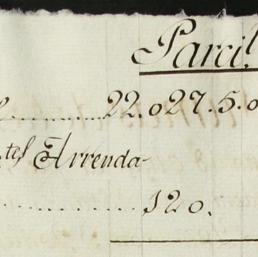 Parcil.
22.027.5.0
tes Arrenda-
120.